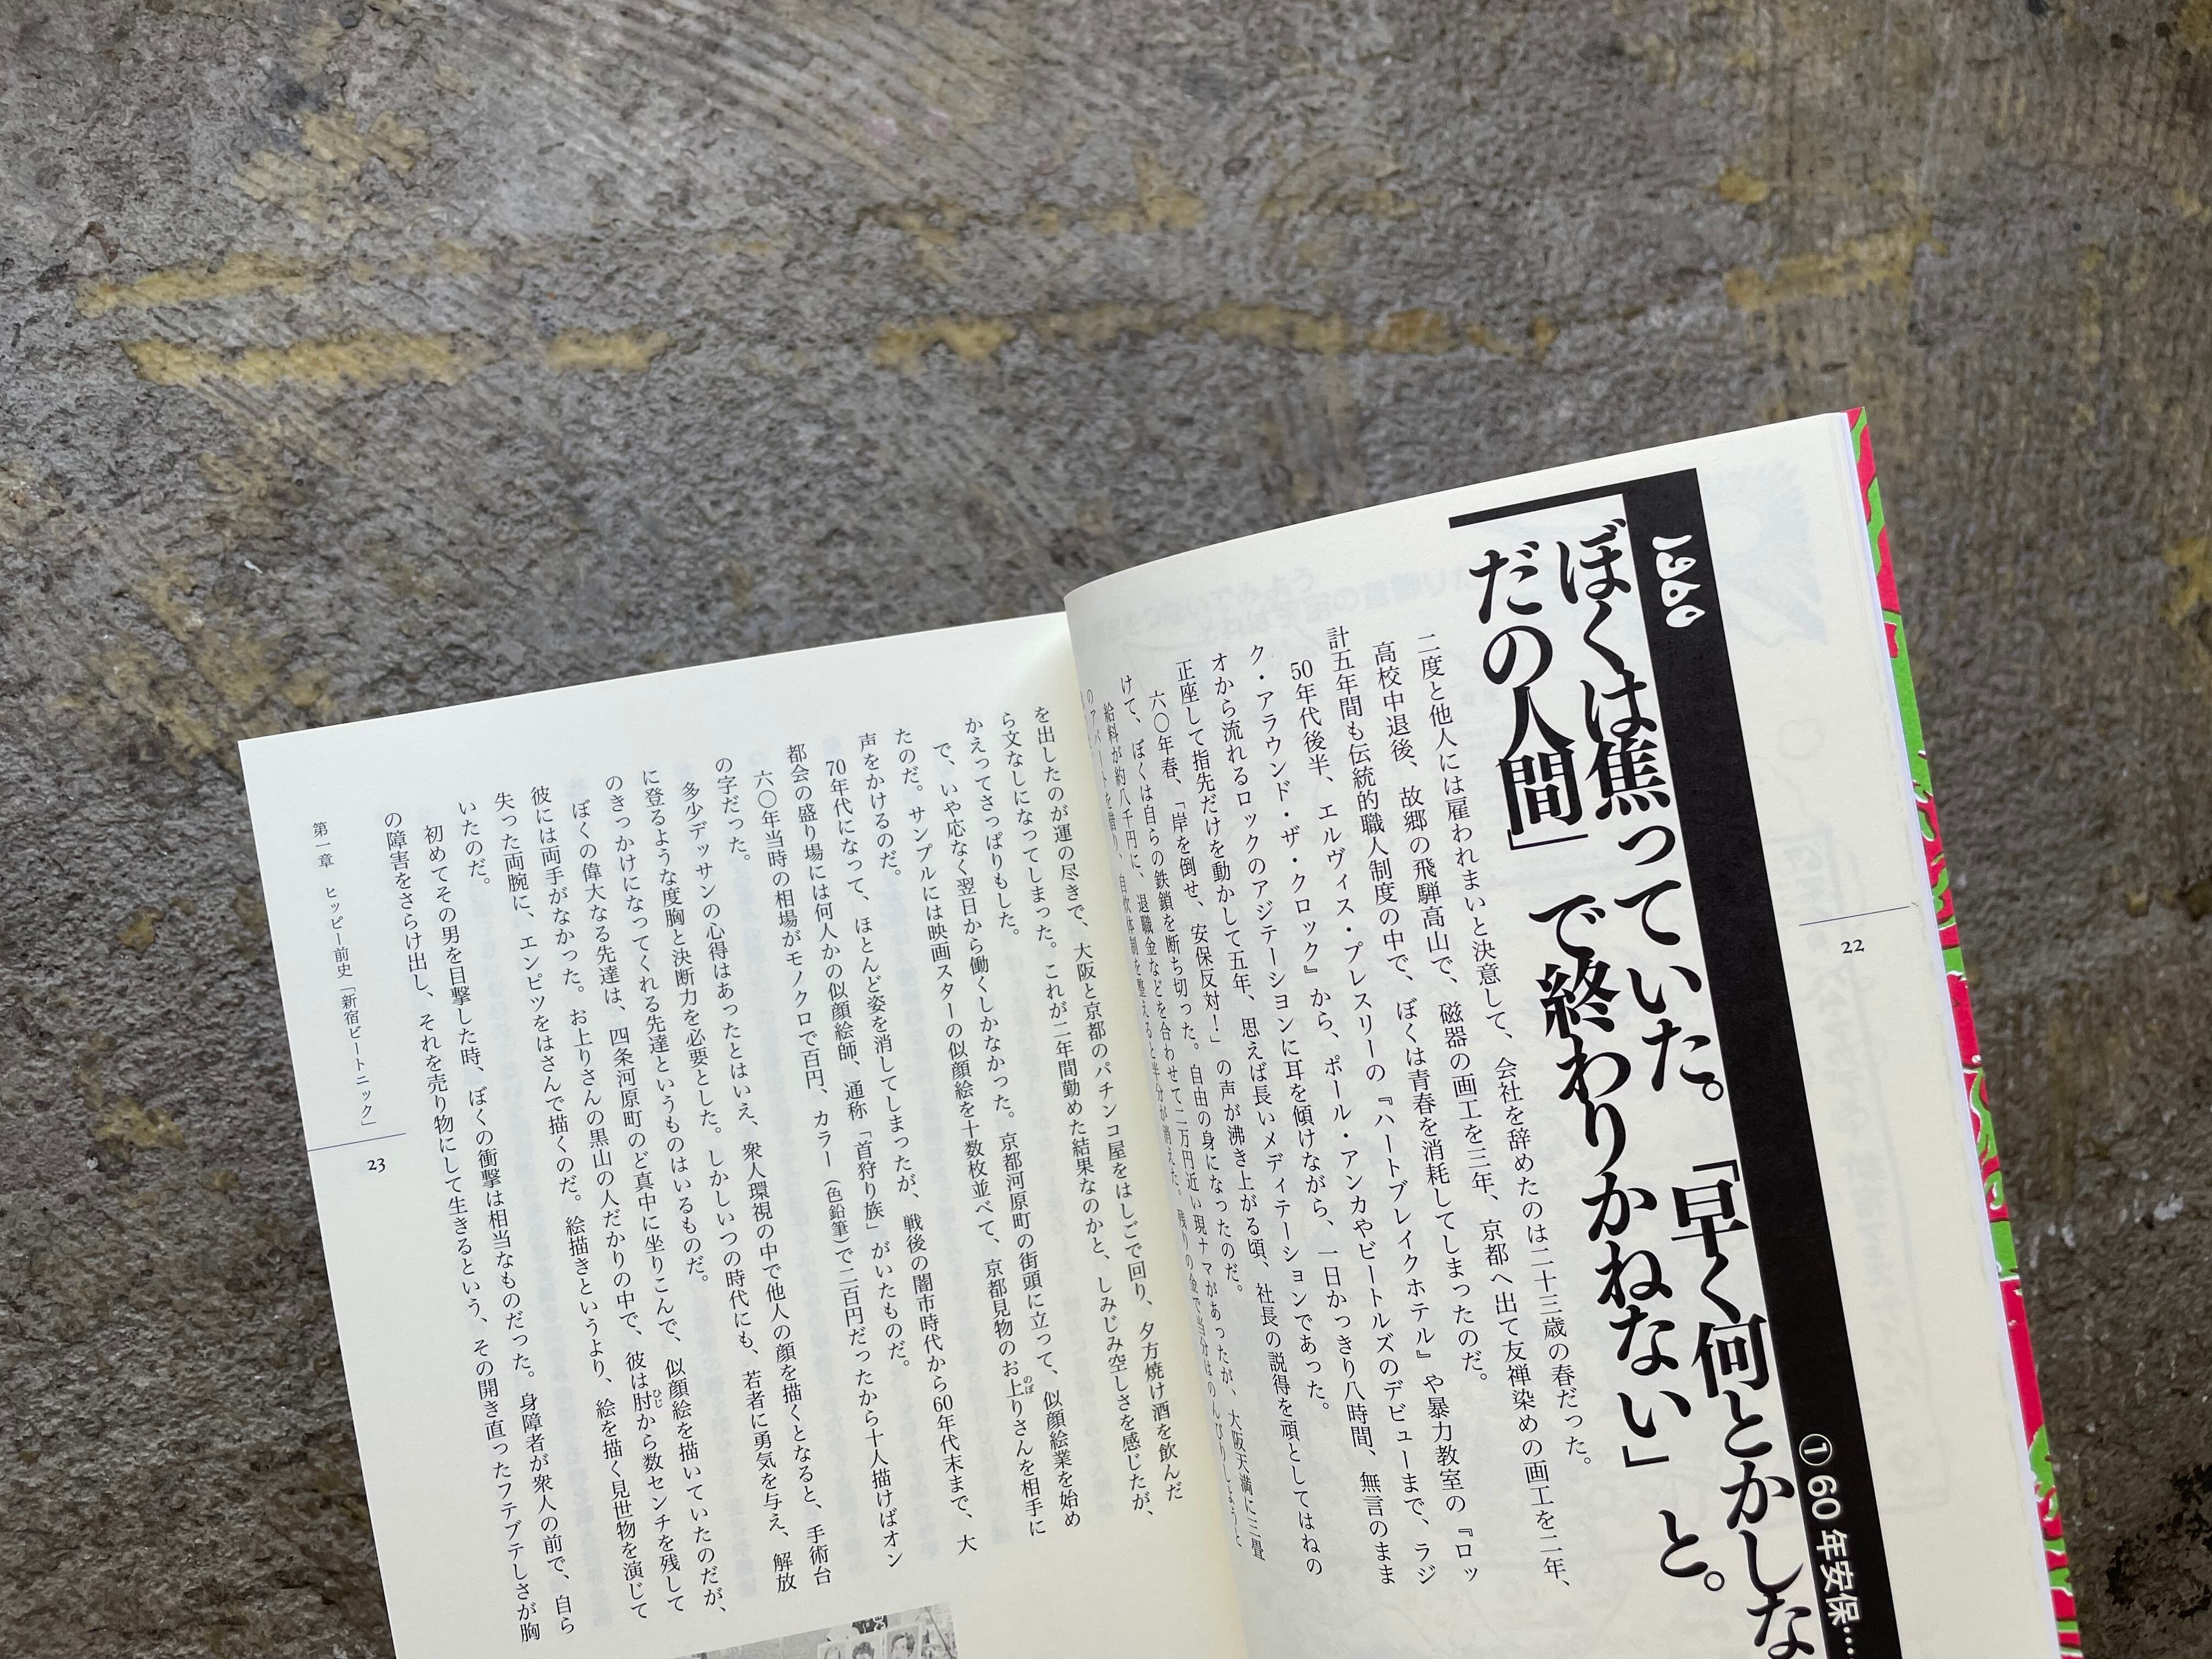 1960
① 60年安保…
ぼくは焦っていた。「早く何とかしな
「だの人間」で終わりかねない」と。
22
二度と他人には雇われまいと決意して、会社を辞めたのは二十三歳の春だった。
高校中退後、故郷の飛騨高山で、磁器の画工を三年、京都へ出て友禅染めの画工を二年、
計五年間も伝統的職人制度の中で、ぼくは青春を消耗してしまったのだ。
50年代後半、エルヴィス・プレスリーの『ハートブレイクホテル』や暴力教室の『ロッ
ク・アラウンド・ザ・クロック』から、ポール・アンカやビートルズのデビューまで、ラジ
オから流れるロックのアジテーションに耳を傾けながら、一日かっきり八時間、無言のまま
正座して指先だけを動かして五年、思えば長いメディテーションであった。
六〇年春、「岸を倒せ、安保反対！」の声が沸き上がる頃、社長の説得を頑としてはねの
けて、ぼくは自らの鉄鎖を断ち切った。自由の身になったのだ。
給料が約八千円に、退職金などを合わせて二万円近い現ナマがあったが、大阪天満に三畳
のアパートを借り、自炊体制を整えると半分が消えた。残りの金で当分はのんびりしようと
を出したのが運の尽きで、大阪と京都のパチンコ屋をはしごで回り、夕方焼け酒を飲んだ
ら文なしになってしまった。これが二年間勤めた結果なのかと、しみじみ空しさを感じたが、
かえってさっぱりもした。
で、いや応なく翌日から働くしかなかった。京都河原町の街頭に立って、似顔絵業を始め
たのだ。サンプルには映画スターの似顔絵を十数枚並べて、京都見物のお上りさんを相手に
声をかけるのだ。
70年代になって、ほとんど姿を消してしまったが、戦後の闇市時代から60年代末まで、大
都会の盛り場には何人かの似顔絵師、通称「首狩り族」がいたものだ。
六〇年当時の相場がモノクロで百円、カラー（色鉛筆）で二百円だったから十人描けばオン
の字だった。
多少デッサンの心得はあったとはいえ、衆人環視の中で他人の顔を描くとなると、手術台
に登るような度胸と決断力を必要とした。しかしいつの時代にも、若者に勇気を与え、解放
のきっかけになってくれる先達というものはいるものだ。
ぼくの偉大なる先達は、四条河原町のど真中に坐りこんで、似顔絵を描いていたのだが、
彼には両手がなかった。お上りさんの黒山の人だかりの中で、彼は肘から数センチを残して
失った両腕に、エンピツをはさんで描くのだ。絵描きというより、絵を描く見世物を演じて
いたのだ。
初めてその男を目撃した時、ぼくの衝撃は相当なものだった。身障者が衆人の前で、自ら
の障害をさらけ出し、それを売り物にして生きるという、その開き直ったフテブテしさが胸
第一章　ヒッピー前史「新宿ビートニック」
23